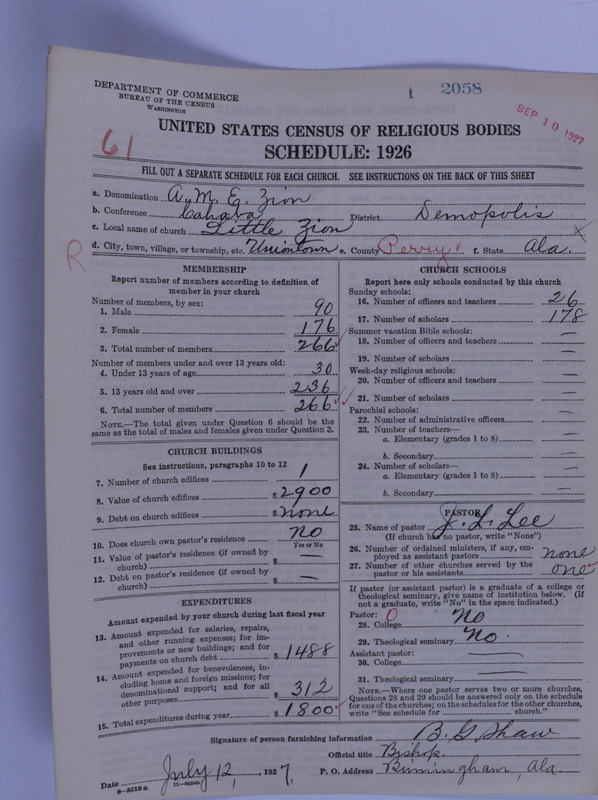 1 2058
DEPARTMENT OF COMMERCE
BUREAU OF THE CENSUS
WASHINGTON
SEP 10 1927
61
UNITED STATES CENSUS OF RELIGIOUS BODIES
SCHEDULE: 1926
FILL OUT A SEPARATE SCHEDULE FOR EACH CHURCH. SEE INSTRUCTIONS ON THE BACK OF THIS SHEET
a. Denomination A. M. E. Zion
b. Conference Cahaba District Demopolis
c. Local name of church Little Zion
R
d. City, town, village, or township, etc. Uniontown e. County Perry f. State Ala.
MEMBERSHIP
Report number of members according to definition of
member in your church
Number of members, by sex:
1. Male 90
2. Female 176
3. Total number of members 266
Number of members under and over 13 years old:
4. Under 13 years of age 30
5. 13 years old and over 236
6. Total number of members 266
NOTE.—The total given under Question 6 should be the
same as the total of males and females given under Question 3.
CHURCH BUILDINGS
See instructions, paragraphs 10 to 12
7. Number of church edifices 1
8. Value of church edifices $ 2900
9. Debt on church edifices $ none
10. Does church own pastor's residence no
Yes or No
11. Value of pastor's residence (if owned by
church) $ —
12. Debt on pastor's residence (if owned by
church) $ —
EXPENDITURES
Amount expended by your church during last fiscal year
13. Amount expended for salaries, repairs,
and other running expenses; for im-
provements or new buildings; and for
payments on church debt $ 1488
14. Amount expended for benevolences, in-
cluding home and foreign missions; for
denominational support; and for all
other purposes $ 312
15. Total expenditures during year $ 1800
CHURCH SCHOOLS
Report here only schools conducted by this church
Sunday schools:
16. Number of officers and teachers 26
17. Number of scholars 178
Summer vacation Bible schools:
18. Number of officers and teachers —
19. Number of scholars —
Week-day religious schools:
20. Number of officers and teachers —
21. Number of scholars —
Parochial schools:
22. Number of administrative officers —
23. Number of teachers—
a. Elementary (grades 1 to 8) —
b. Secondary —
24. Number of scholars—
a. Elementary (grades 1 to 8) —
b. Secondary —
PASTOR
25. Name of pastor J. L. Lee
(If church has no pastor, write "None")
26. Number of ordained ministers, if any, em-
ployed as assistant pastors none
27. Number of other churches served by the
pastor or his assistants one
If pastor (or assistant pastor) is a graduate of a college or
theological seminary, give name of institution below. (If
not a graduate, write "No" in the space indicated.)
Pastor: 0
28. College No
29. Theological seminary No.
Assistant pastor:
30. College —
31. Theological seminary —
NOTE.—Where one pastor serves two or more churches,
Questions 28 and 29 should be answered only on the schedule
for one of the churches; on the schedules for the other churches,
write "See schedule for church."
Signature of person furnishing information B. G. Shaw
Official title Bishop
Date July 12, 1927. P. O. Address Birmingham, Ala
8-5518a